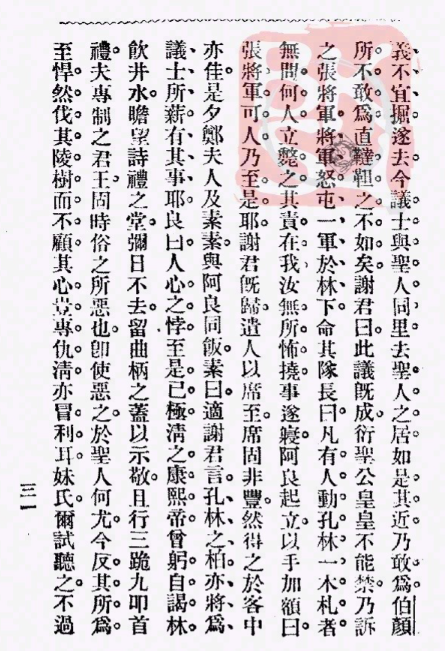 義不宜掘遂去今議士與聖人同里去聖人之居如是其近乃敢爲伯顏
所不敢爲直韃靼之不如矣謝君曰此議旣成衍聖公皇皇不能禁乃訴
之張將軍將軍怒屯一軍於林下命其隊長曰凡有人動孔林一木札者
無問何人立斃之其責在我汝無所怖撓事遂寢阿良起立以手加額曰
張將軍可人乃至是耶謝君旣歸遣人以席至席固非豐然得之於客中
亦佳是夕鄭夫人及素素與阿良同飯素曰適謝君言孔林之柏亦將爲
議士所薪有其事耶良曰人心之悖至是已極淸之康熙帝曾躬自謁林
飮井水瞻望詩禮之堂彌日不去留曲柄之蓋以示敬且行三跪九叩首
禮夫專制之君王固時俗之所惡也卽使惡之於聖人何尤今反其所爲
至悍然伐其陵樹而不顧其心豈專仇淸亦冒利耳妹氏爾試聽之不過
三一